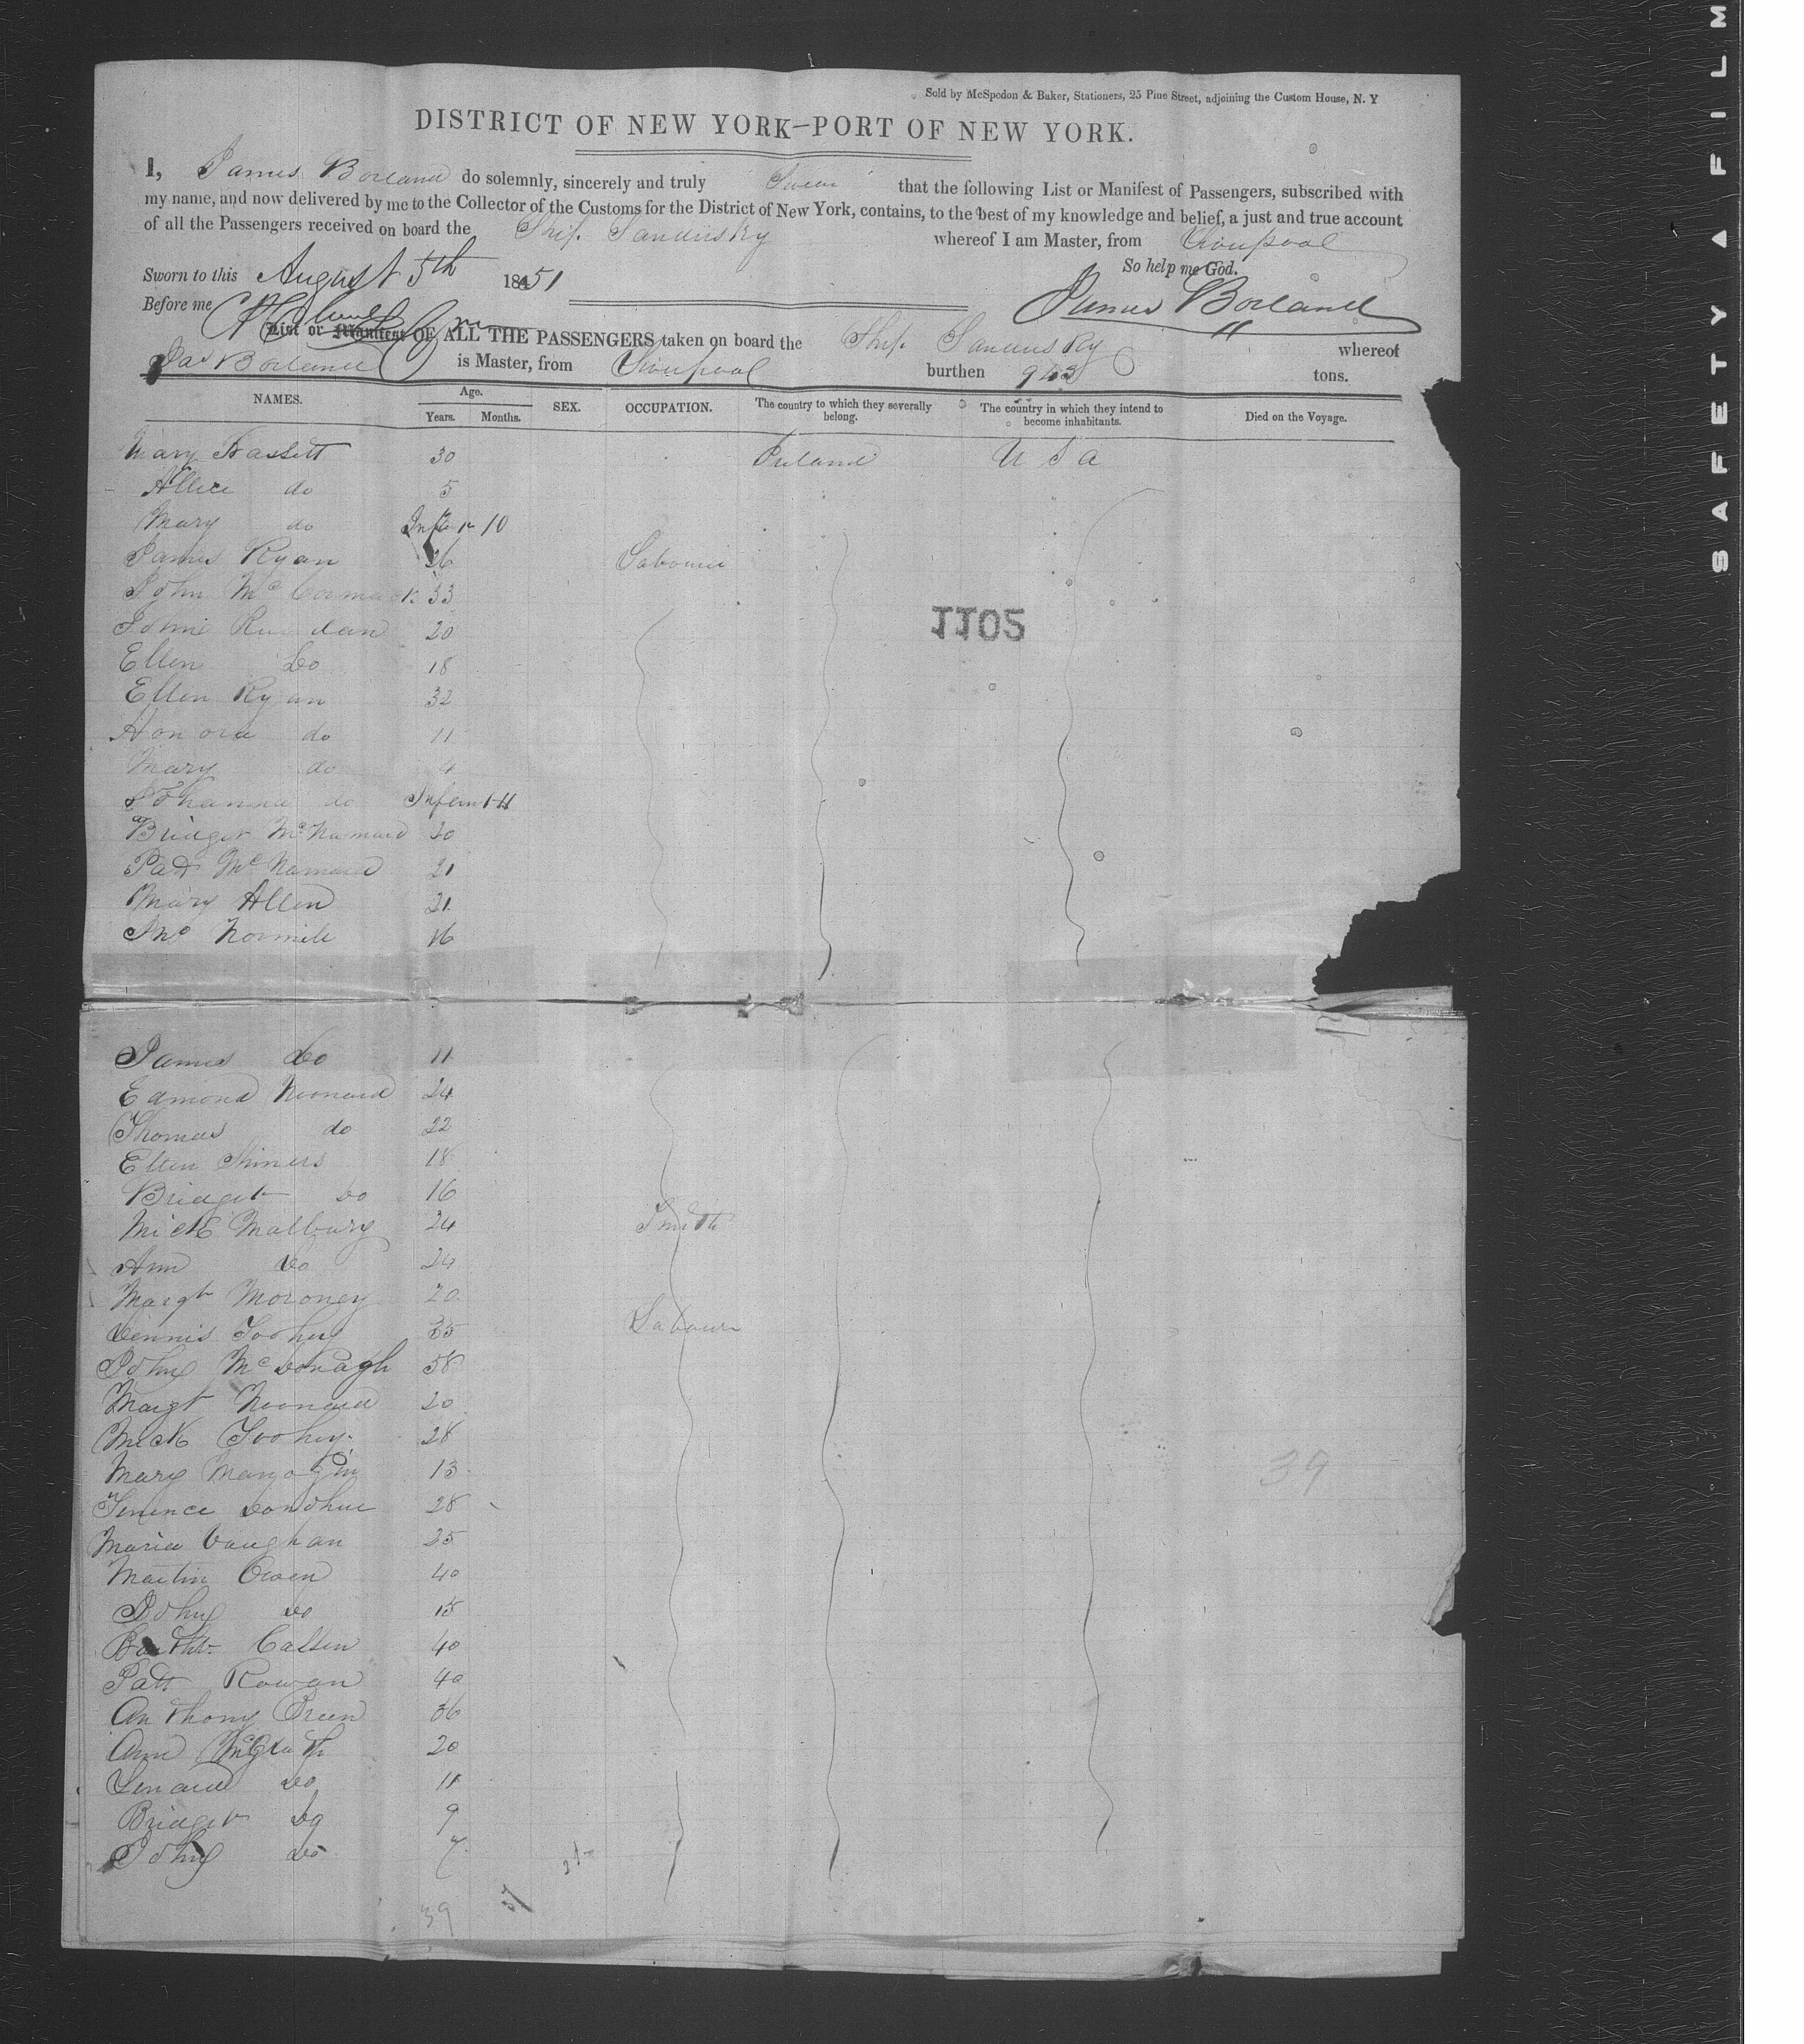 Sold by McSpedon & Baker, Stationers, 25 Pine Street, adjoining the Custom House, N. Y
DISTRICT OF NEW YORK—PORT OF NEW YORK.
I, James Borland do solemnly, sincerely and truly Swear that the following List or Manifest of Passengers, subscribed with
my name, and now delivered by me to the Collector of the Customs for the District of New York, contains, to the best of my knowledge and belief, a just and true account
of all the Passengers received on board the Ship Sandusky whereof I am Master, from Liverpool
So help me God.
Sworn to this August 5th 1851
James Borland
Before me
List or Manifest OF ALL THE PASSENGERS taken on board the Ship Sandusky whereof
Jas Borland is Master, from Liverpool burthen 943 tons.
NAMES. Age. Years. Months. SEX. OCCUPATION. The country to which they severally belong. The country in which they intend to become inhabitants. Died on the Voyage.
Mary Hassett 30 Ireland U S A
Allice do 5
Mary do Infant 10
James Ryan 26 Labourer
John McCormack 33
20
Ellen Do 18
Ellen Ryan 32
Honora do 11
Mary do 4
Johanna do Infant 11
Bridget McNamara 20
Patt McNamara 21
Mary Allen 21
Jno Normile 16
1105
James Do 11
Edmond 24
Thomas do 22
Ellen Shiners 18
Bridget Do 16
Mick Malbury 24 Smith
Ann Do 24
Margt Moroney 20
Dennis Toohey 35 Labourer
John McDonagh 58
Margt 20
Mick Toohey 28
Mary 13
39
Terence Donohue 28
Maria Vaughan 25
Martin Owen 40
John Do 15
Barthw Callen 40
Patt Rowan 40
Anthony 36
Ann McGrath 20
Lenard Do 11
Bridget Do 9
John Do 7
39
SAFETY A FILM